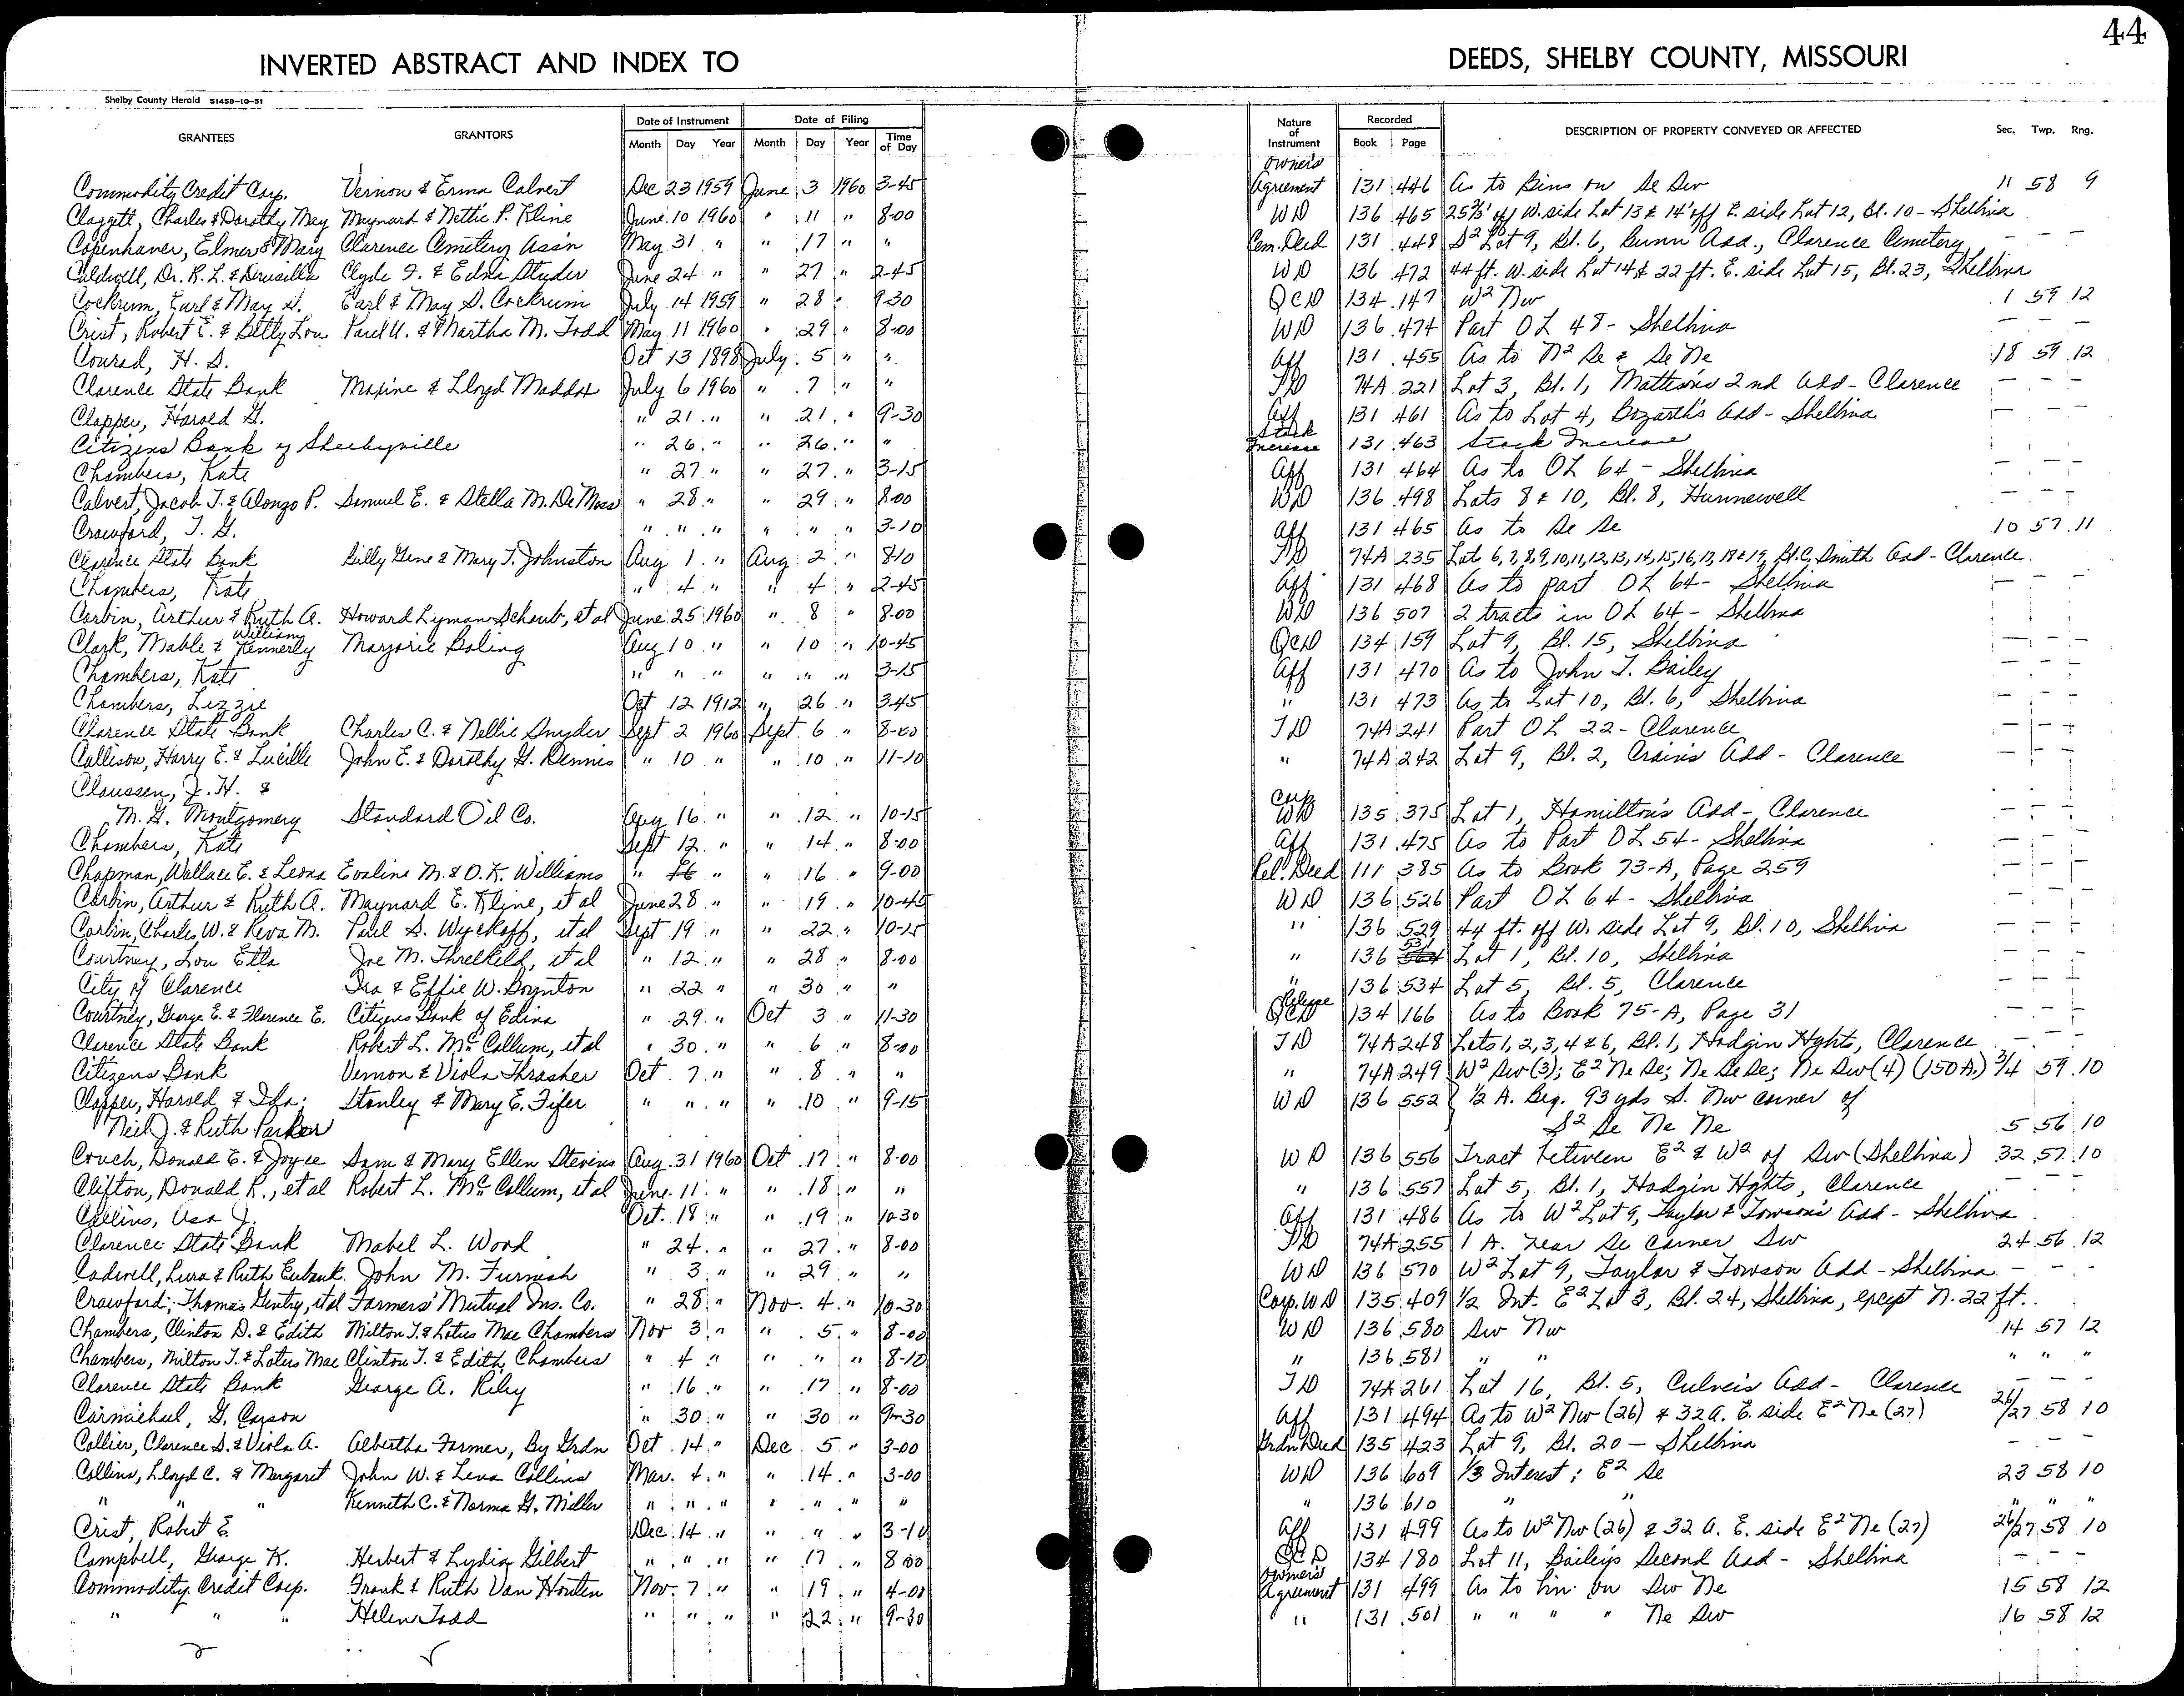 44
INVERTED ABSTRACT AND INDEX TO DEEDS, SHELBY COUNTY, MISSOURI
Shelby County Herald 51458-10-51
GRANTEES GRANTORS Date of Instrument Date of Filing Nature of Instrument Recorded DESCRIPTION OF PROPERTY CONVEYED OR AFFECTED Sec. Twp. Rng.
Month Day Year Month Day Year Time of Day Book Page
Commodity Credit Corp. Vernon & Erma Calvert Dec 23 1959 June 3 1960 3-45 Owner's Agreement 131 446 As to Bins on Se Sw 11 58 9
Claggett, Charles & Dorothy May Maynard & Nettie P. Kline June 10 1960 " 11 " 8-00 WD 136 465 25⅔' off W. side Lot 13 & 14' off E. side Lot 12, Bl. 10 - Shelbina
Copenhaver, Elmer & Mary Clarence Cemetery Ass'n May 31 " " 17 " " Cem. Deed 131 448 S² Lot 9, Bl. 6, Bunn Add., Clarence Cemetery - - -
Caldwell, Dr. R. L. & Drusilla Clyde F. & Edna Studer June 24 " " 27 " 2-45 WD 136 472 44 ft. W. side Lot 14 & 22 ft. E. side Lot 15, Bl. 23, Shelbina
Cockrum, Earl & May S. Earl & May S. Cockrum July 14 1959 " 28 " 9-30 QCD 134 147 W² Nw 1 59 12
Crist, Robert E. & Betty Lou Paul U. & Martha M. Todd May 11 1960 " 29 " 8-00 WD 136 474 Part OL 48 - Shelbina - - -
Conrad, H. S. Oct 13 1898 July 5 " " Aff 131 455 As to N² Se & Se Ne 18 59 12
Clarence State Bank Maxine & Lloyd Maddox July 6 1960 " 7 " " TD 74A 221 Lot 3, Bl. 1, Mattison's 2nd Add - Clarence - - -
Clapper, Harold G. " 21 " " 21 " 9-30 Aff 131 461 As to Lot 4, Bozarth's Add - Shelbina - - -
Citizens Bank of Shelbyville " 26 " " 26 " " Stock Increase 131 463 Stock Increase
Chambers, Kate " 27 " " 27 " 3-15 Aff 131 464 As to OL 64 - Shelbina - - -
Calvert, Jacob T. & Alonzo P. Samuel E. & Stella M. DeMoss " 28 " " 29 " 8-00 WD 136 498 Lots 8 & 10, Bl. 8, Hunnewell - - -
Crawford, T. G. " " " " " " 3-10 Aff 131 465 As to Se Se 10 57 11
Clarence State Bank Billy Gene & Mary T. Johnston Aug 1 " Aug 2 " 8-10 TD 74A 235 Lot 6,7,8,9,10,11,12,13,14,15,16,17,18 & 19, Bl. C, Smith Add - Clarence
Chambers, Kate " 4 " " 4 " 2-45 Aff 131 468 As to part OL 64 - Shelbina - - -
Corbin, Arthur & Ruth A. Howard Lyman Schaub, et al June 25 1960 " 8 " 8-00 WD 136 507 2 tracts in OL 64 - Shelbina - - -
Clark, Mable & William Kennerly Marjorie Boling Aug 10 " " 10 " 10-45 QCD 134 159 Lot 9, Bl. 15, Shelbina - - -
Chambers, Kate " " " " " " 3-15 Aff 131 470 As to John T. Bailey - - -
Chambers, Lizzie Oct 12 1912 " 26 " 3-45 " 131 473 As to Lot 10, Bl. 6, Shelbina - - -
Clarence State Bank Charles C. & Nellie Snyder Sept 2 1960 Sept 6 " 8-00 TD 74A 241 Part OL 22 - Clarence - - -
Callison, Harry E. & Lucille John E. & Dorothy G. Dennis " 10 " " 10 " 11-10 " 74A 242 Lot 9, Bl. 2, Crain's Add - Clarence - - -
Claussen, J. H. &
M. G. Montgomery Standard Oil Co. Aug 16 " " 12 " 10-15 Corp WD 135 375 Lot 1, Hamilton's Add - Clarence - - -
Chambers, Kate Sept 12 " " 14 " 8-00 Aff 131 475 As to Part OL 54 - Shelbina - - -
Chapman, Wallace E. & Leona Evaline M. & O. K. Williams " 16 " " 16 " 9-00 Rel. Deed 111 385 As to Book 73-A, Page 259
Corbin, Arthur & Ruth A. Maynard E. Kline, et al June 28 " " 19 " 10-45 WD 136 526 Part OL 64 - Shelbina - - -
Corbin, Charles W. & Reva M. Paul S. Wyckoff, et al Sept 19 " " 22 " 10-15 " 136 529 44 ft. off W. side Lot 9, Bl. 10, Shelbina - - -
Courtney, Lou Etta Joe M. Threlkeld, et al " 12 " " 28 " 8-00 " 136 531 Lot 1, Bl. 10, Shelbina - - -
City of Clarence Ira & Effie W. Boynton " 22 " " 30 " " " 136 534 Lot 5, Bl. 5, Clarence - - -
Courtney, George E. & Florence E. Citizens Bank of Edina " 29 " Oct 3 " 11-30 Release QCD 134 166 As to Book 75-A, Page 31
Clarence State Bank Robert L. McCollum, et al " 30 " " 6 " 8-00 TD 74A 248 Lots 1, 2, 3, 4 & 6, Bl. 1, Hodgin Hghts, Clarence - - -
Citizens Bank Vernon & Viola Thrasher Oct 7 " " 8 " " " 74A 249 W² Sw (3); E² Ne Se; Ne Se Se; Ne Sw (4) (150 A.) 3/4 59 10
Clapper, Harold & Ida; Stanley & Mary E. Fifer " " " " 10 " 9-15 WD 136 552 ½ A. Beg. 93 yds S. Nw corner of
Neil J. & Ruth Parker S² Se Ne Ne 5 56 10
Couch, Donald E. & Joyce Sam & Mary Ellen Stevens Aug 31 1960 Oct 17 " 8-00 WD 136 556 Tract between E² & W² of Sw (Shelbina) 32 57 10
Clifton, Donald R., et al Robert L. McCollum, et al June 11 " " 18 " " " 136 557 Lot 5, Bl. 1, Hodgin Hghts, Clarence - - -
Collins, Asa J. Oct. 18 " " 19 " 10-30 Aff 131 486 As to W² Lot 9, Taylor & Towson's Add - Shelbina
Clarence State Bank Mabel L. Wood " 24 " " 27 " 8-00 TD 74A 255 1 A. near Se corner Sw 24 56 12
Cadwell, Lura & Ruth Eubank John M. Furnish " 3 " " 29 " " WD 136 570 W² Lot 9, Taylor & Towson Add - Shelbina - - -
Crawford, Thomas Gentry, et al Farmers' Mutual Ins. Co. " 28 " Nov. 4 " 10-30 Corp. WD 135 409 ½ Int. E² Lot 3, Bl. 24, Shelbina, except N. 22 ft.
Chambers, Clinton D. & Edith Milton T. & Lotus Mae Chambers Nov 3 " " 5 " 8-00 WD 136 580 Sw Nw 14 57 12
Chambers, Milton T. & Lotus Mae Clinton T. & Edith Chambers " 4 " " " " 8-10 " 136 581 " " " " "
Clarence State Bank George A. Riley " 16 " " 17 " 8-00 TD 74A 261 Lot 16, Bl. 5, Culver's Add - Clarence - - -
Carmichael, G. Carson " 30 " " 30 " 9-30 Aff 131 494 As to W² Nw (26) & 32 A. E. side E² Ne (27) 26/27 58 10
Collier, Clarence S. & Viola A. Albertha Farmer, By Grdn Oct 14 " Dec 5 " 3-00 Grdn Deed 135 423 Lot 9, Bl. 20 - Shelbina - - -
Collins, Lloyd C. & Margaret John W. & Lena Collins Mar. 4 " " 14 " 3-00 WD 136 609 ⅓ Interest; E² Se 23 58 10
" " " Kenneth C. & Norma G. Miller " " " " " " " " 136 610 " " " " "
Crist, Robert E. Dec 14 " " " " 3-10 Aff 131 499 As to W² Nw (26) & 32 A. E. side E² Ne (27) 26/27 58 10
Campbell, George K. Herbert & Lydia Gilbert " " " " 17 " 8-00 QCD 134 180 Lot 11, Bailey's Second Add - Shelbina - - -
Commodity Credit Corp. Frank & Ruth Van Houten Nov. 7 " " 19 " 4-00 Owner's Agreement 131 499 As to bin on Sw Ne 15 58 12
" " " Helen Todd " " " " 22 " 9-30 " 131 501 " " " " Ne Sw 16 58 12